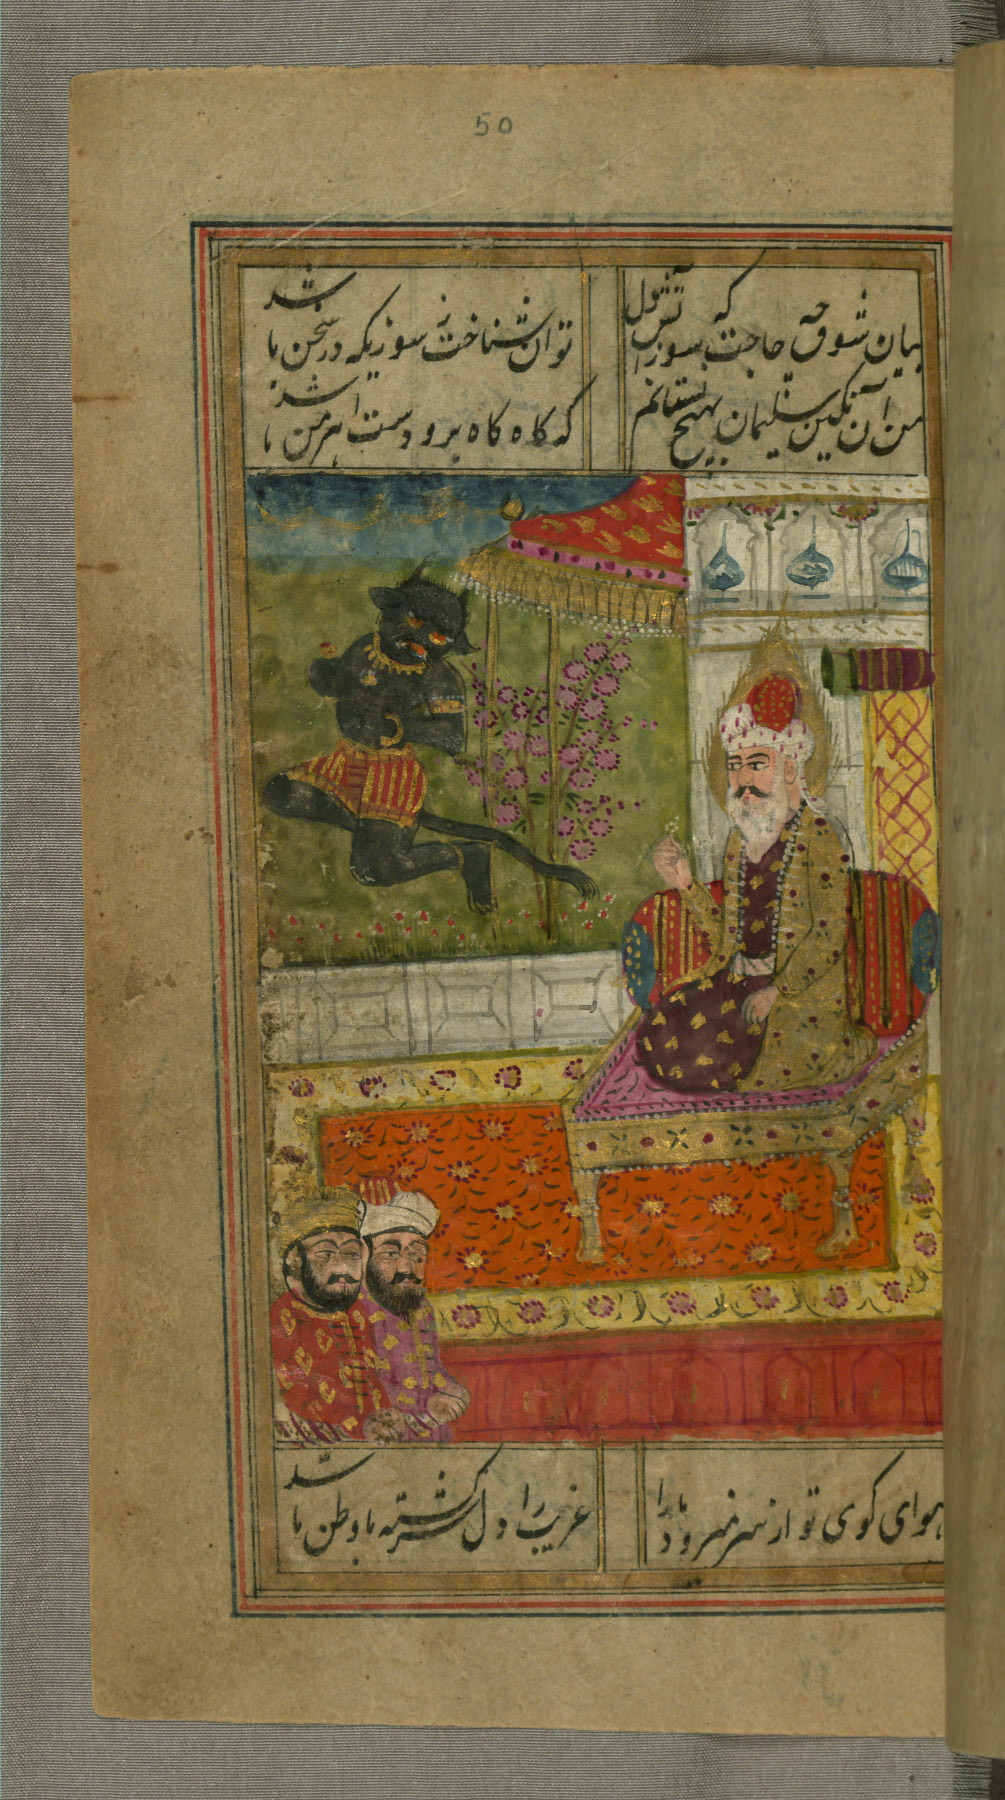 50
بیان شوق چه حاجت که سوز آتش دل
توان شناخت ز سوزیکه در سخن باشد
من آن نگین سلیمان بهیچ نستانم
که کاه کاه برو دست اهرمن باشد
هوای کوی تو از سر نمیرود ما را
غریب را دل سرکشته با وطن باشد